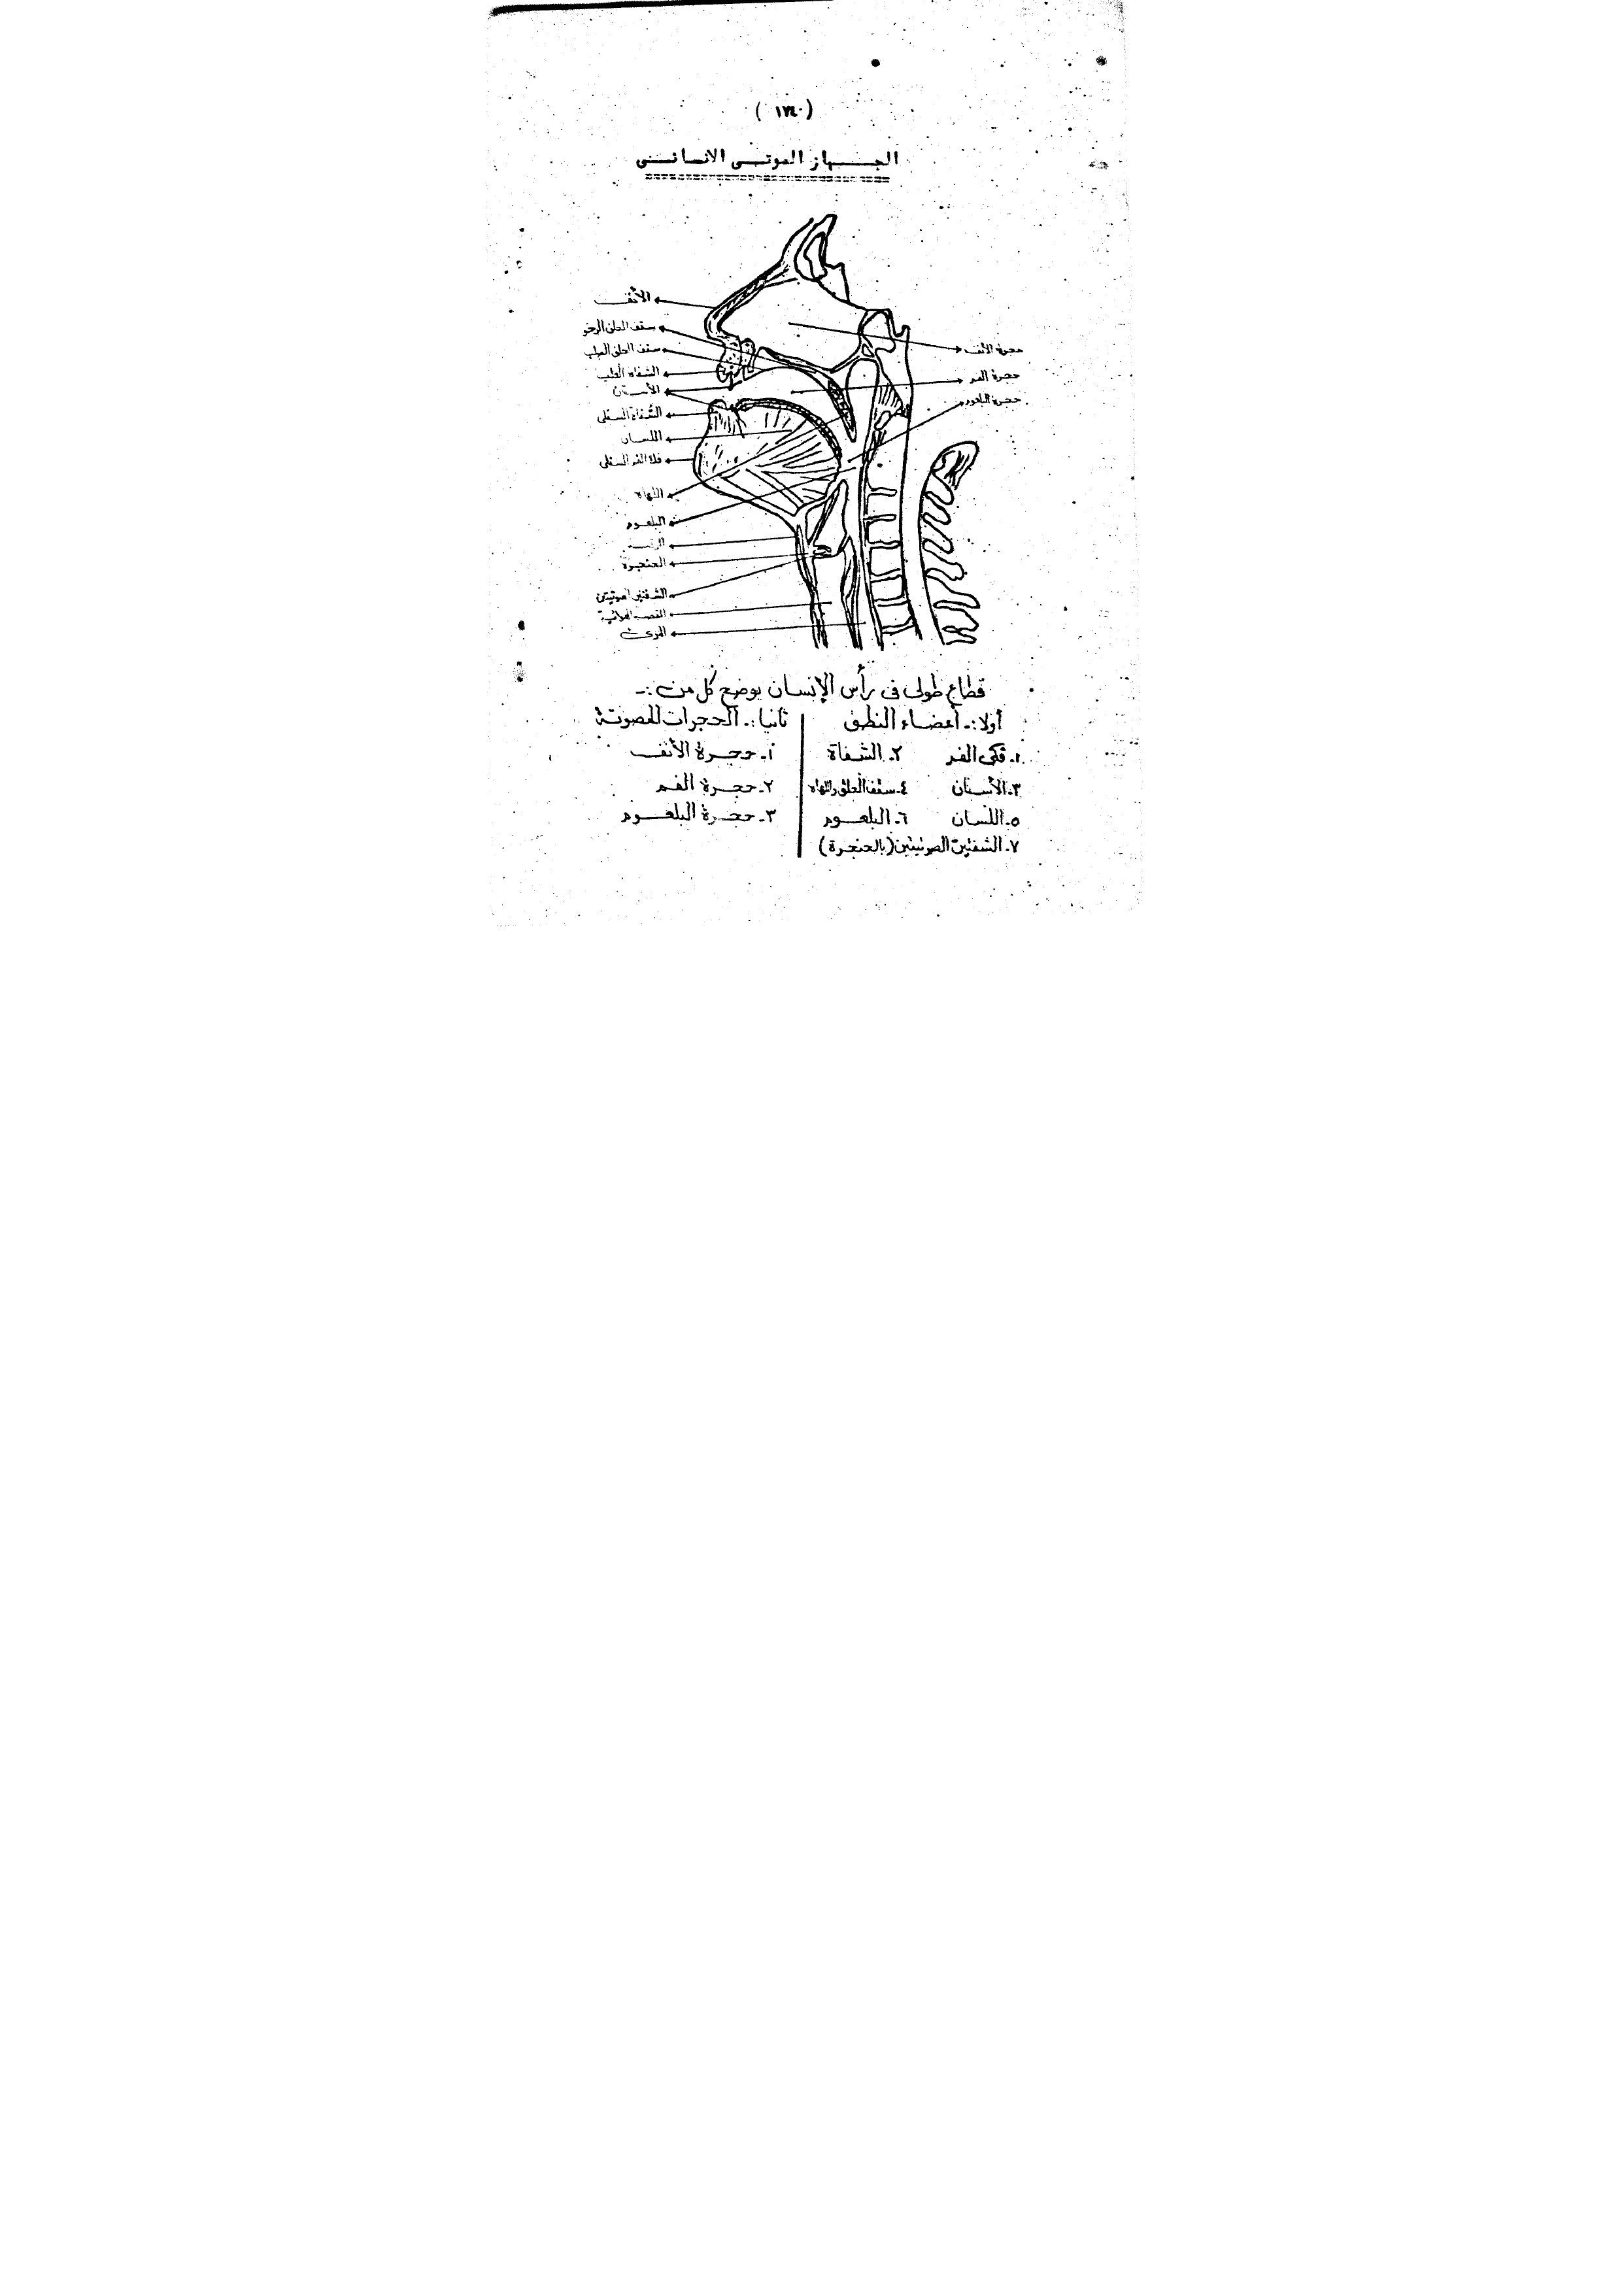 ( ١٧٤ )
الجهاز الصوتى الانسانى
الأنف
سقف الحلق الرخو
سقف الحلق الصلب
الشفاة العليا
الأسنان
الشفاة السفلى
اللسان
فك الفم السفلى
اللهاه
البلعوم
الحنجرة
الشفتين الصوتيتين
القصبة الهوائية
المرئ
حجرة الأنف
حجرة الفم
حجرة البلعوم
قطاع طولى فى رأس الإنسان يوضح كل من :ـ
أولا :ـ أعضاء النطق
١ـ فكى الفم ٢ـ الشفاة
٣ـ الأسنان ٤ـ سقف الحلق واللهاه
٥ـ اللسان ٦ـ البلعوم
٧ـ الشفتين الصوتيتين (بالحنجرة)
ثانيا :ـ الحجرات المصوتة
١ـ حجرة الأنف
٢ـ حجرة الفم
٣ـ حجرة البلعوم